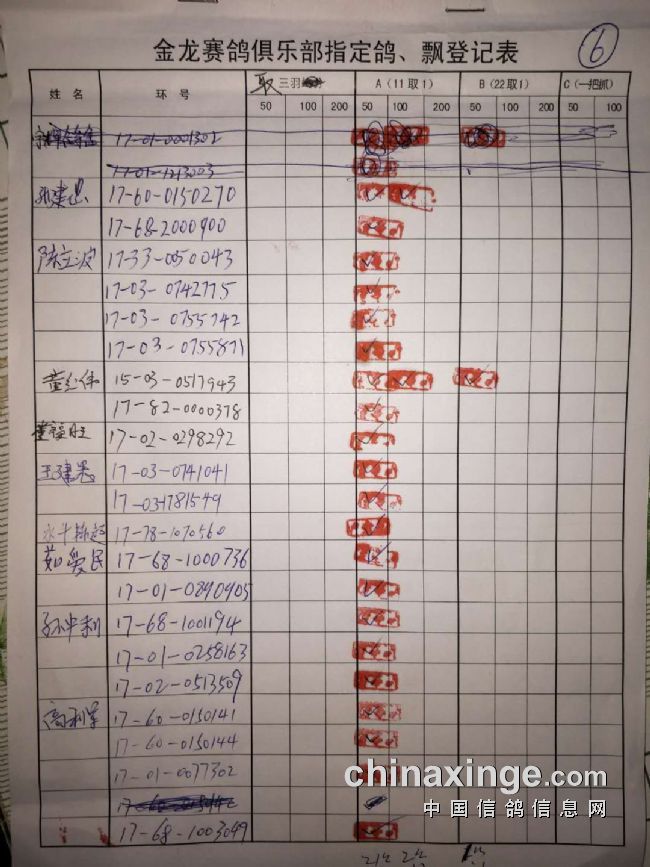 金龙赛鸽俱乐部指定鸽、飘登记表 6
姓名 环号 取三羽 A(11取1) B(22取1) C(一把抓)
50 100 200 50 100 200 50 100 200 50 100
17-01-0001302
17-01-1213003
17-60-0150270
17-68-2000900
陈立波 17-33-0050043
17-03-0742775
17-03-0755742
17-03-0755871
董红伟 15-03-0517943
17-82-0000378
董福旺 17-02-0298292
王建忠 17-03-0741041
17-031781549
17-78-1070560
茹爱民 17-68-1000736
17-01-0890905
17-68-1001194
17-01-0258163
17-02-0513509
高利军 17-60-0150141
17-60-0150144
17-01-0077302
17-68-1003049
chinaxinge.com
中国信鸽信息网